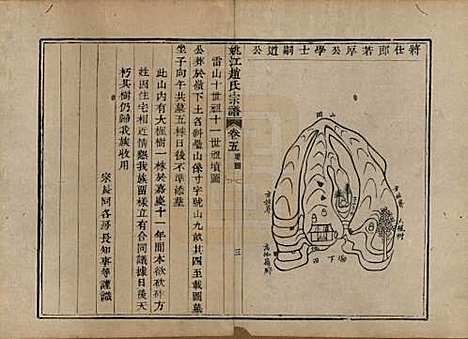 將仕郎若厚公學士嗣道公
山岡
大椇樹
田下塆
姚江趙氏宗譜
卷五
墳圖
三
雷山十世祖十一世祖墳圖
公葬於嶺下土名斜壟山係寸字號山九畝其四至載圖墓
坐子向午共墓五椂日後不準添墓
此山內有大椇樹一株於嘉慶十一年間本欲砍斫百
姓因住宅相近情懇我族留樣立有合同議據日後天
朽其樹仍歸我族收用
宗長同各房長知事等謹識